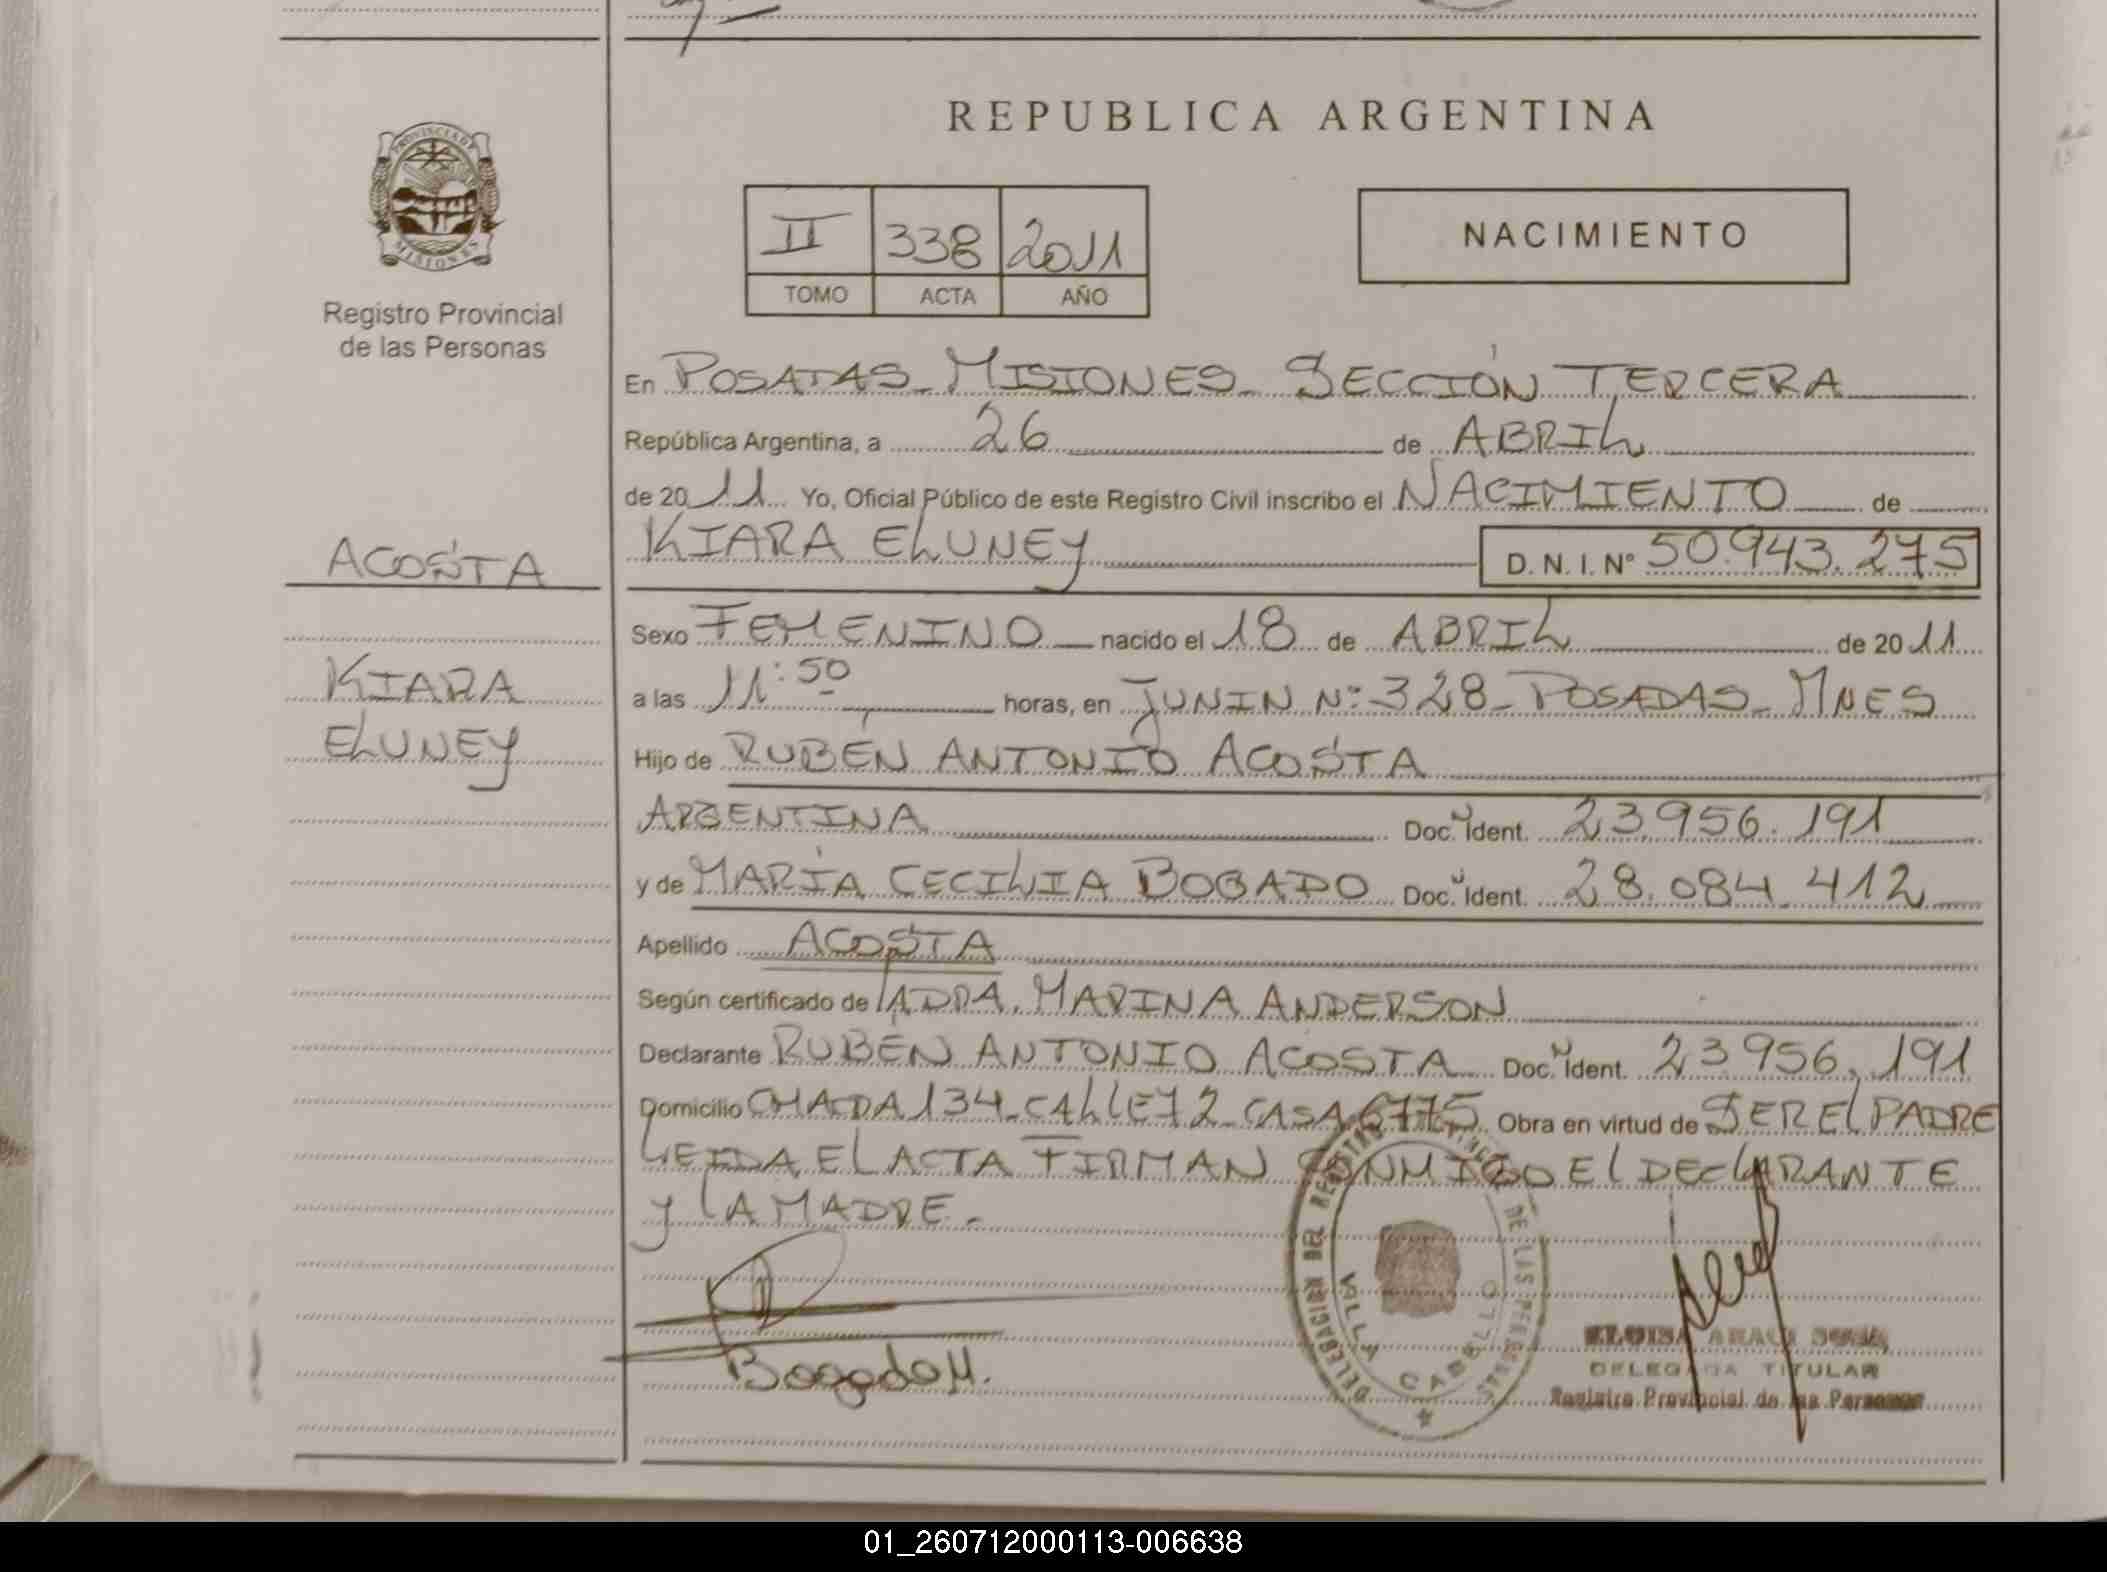 REPUBLICA ARGENTINA
PROVINCIA DE
MISIONES
Registro Provincial
de las Personas
II 338 2011
TOMO ACTA AÑO
NACIMIENTO
En POSADAS - MISIONES - SECCIÓN TERCERA
República Argentina, a 26 de ABRIL
de 2011 Yo, Oficial Público de este Registro Civil inscribo el NACIMIENTO de
ACOSTA
KIARA ELUNEY D. N. I. Nº 50.943.275
Sexo FEMENINO nacido el 18 de ABRIL de 2011
KIARA
a las 11:50 horas, en JUNIN Nº: 328 - POSADAS - MNES
ELUNEY
Hijo de RUBÉN ANTONIO ACOSTA
ARGENTINA Doc. Ident. 23.956.191
y de MARÍA CECILIA BOGADO Doc. Ident. 28.084.412
Apellido ACOSTA
Según certificado de LA DRA. MARINA ANDERSON
Declarante RUBÉN ANTONIO ACOSTA Doc. Ident. 23.956.191
Domicilio CHACRA 134 - CALLE 72 - CASA 6775 Obra en virtud de SER EL PADRE
LEIDA EL ACTA FIRMAN CONMIGO EL DECLARANTE
Y LA MADRE.-
Bogado M.
DELEGACION DEL REGISTRO DE LAS PERSONAS
VILLA CABELLO
ELOISA
DELEGADA TITULAR
Registro Provincial de las Personas
01_260712000113-006638